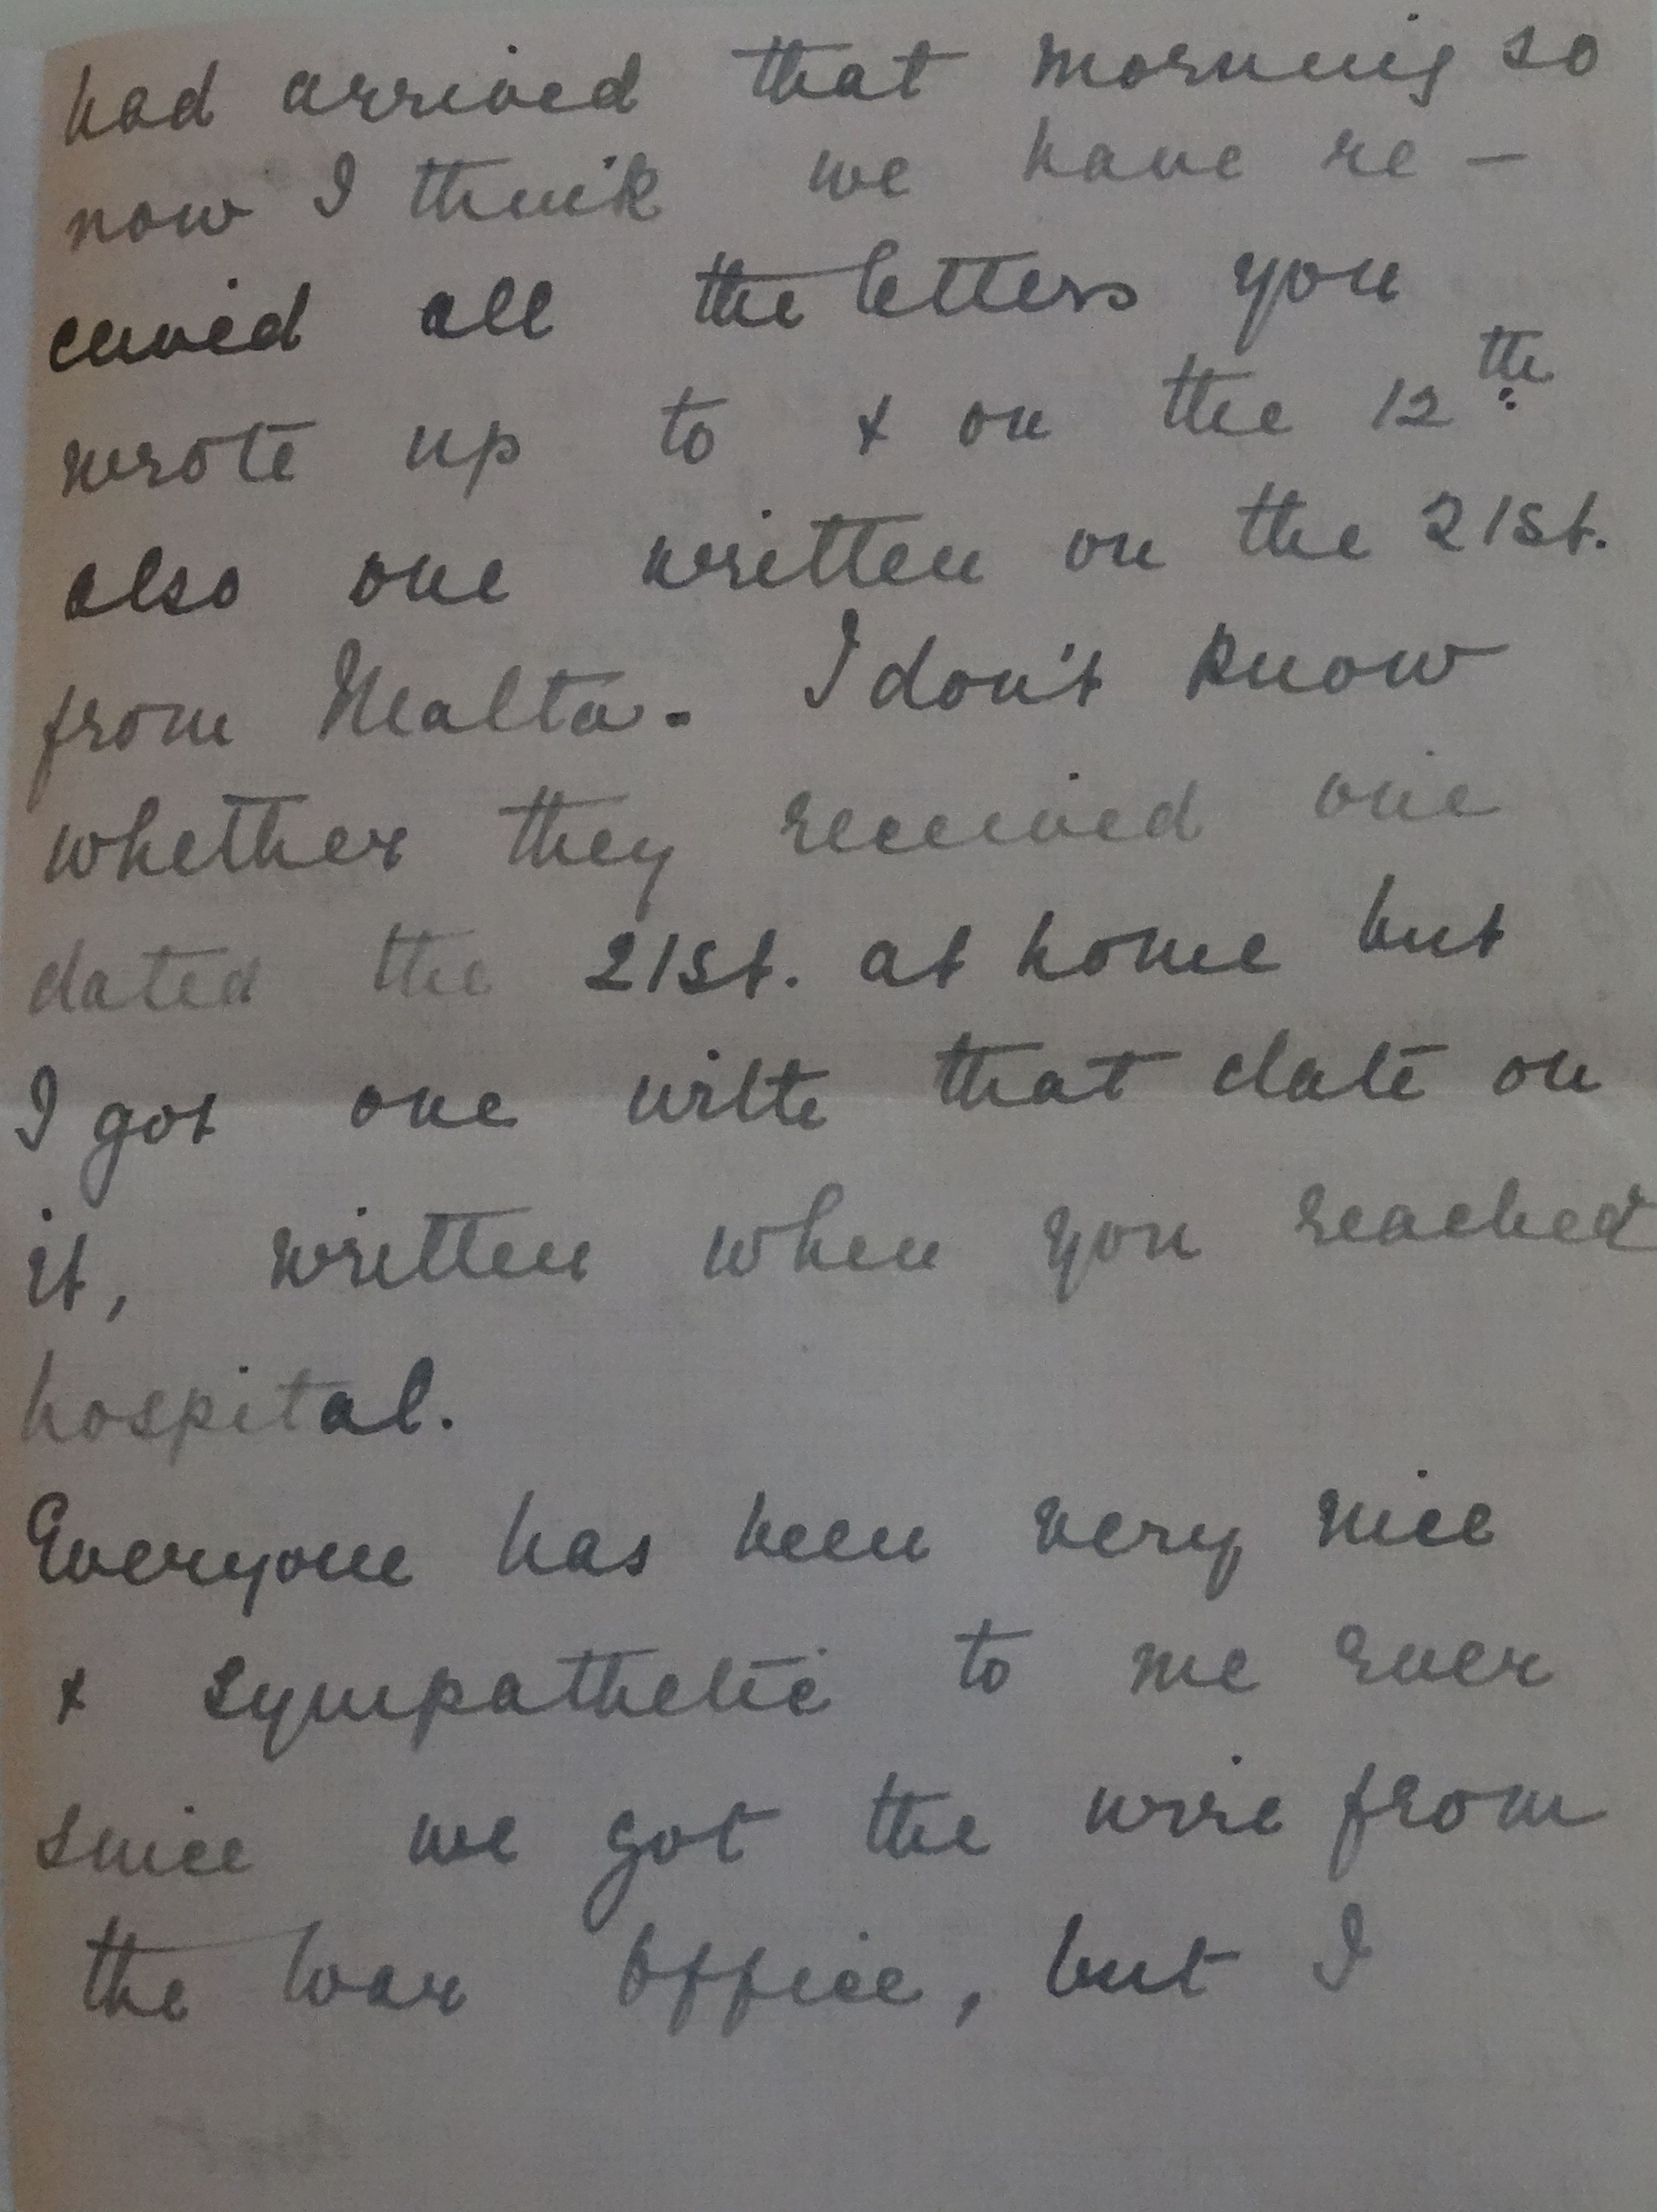 had arrived that morning so
now I think we have re-
ceived all the letters you
wrote up to & on the 12th
also one written on the 21st.
from Malta. I don't know
whether they received one
dated the 21st. at home but
I got one with that date on
it, written when you reached
hospital.
Everyone has been very nice
& sympathetic to me ever
since we got the wire from
the War Office, but I